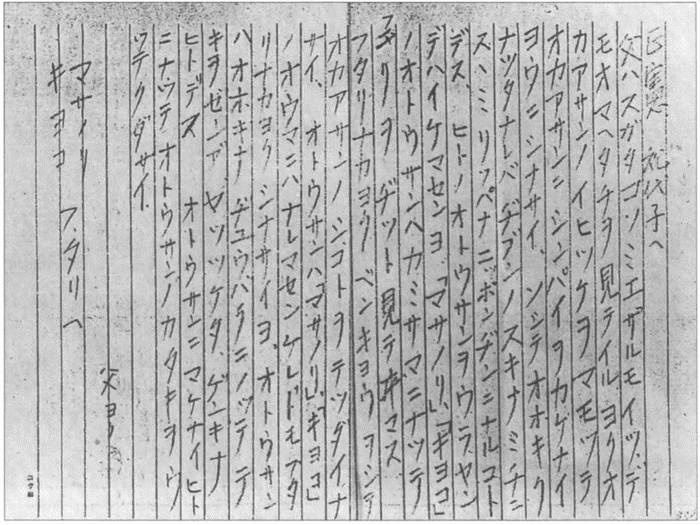 正憲 紀代子ヘ
父ハスガタコソミエザルモイツデ
モオマヘタチヲ見テイル ヨクオ
カアサンノイヒツケヲマモツテ
オカアサンニシンパイヲカケナイ
ヨウニシナサイ、ソシテオオキク
ナツタナレバヂブンノスキナミチニ
ススミリッパナニッポンヂンニナルコト
デス、ヒトノオトウサンヲウラヤン
デハイケマセンヨ、「マサノリ」「キヨコ」
ノオトウサンハカミサマニナツテ
フタリヲヂット見テヰマス
フタリナカヨクベンキョウヲシテ
オカアサンノシゴトヲテツダイナ
サイ、オトウサンハ「マサノリ」「キヨコ」
ノオウマニハナレマセンケレドモフタ
リナカヨクシナサイヨ、オトウサン
ハオホキナヂュウバクニノッテテ
キヲゼンブヤッツケタゲンキナ
ヒトデス オトウサンニマケナイヒト
ニナツテオトウサンノカタキヲウ
ツテクダサイ.
父ヨリ
マサノリ
キヨコ フタリヘ